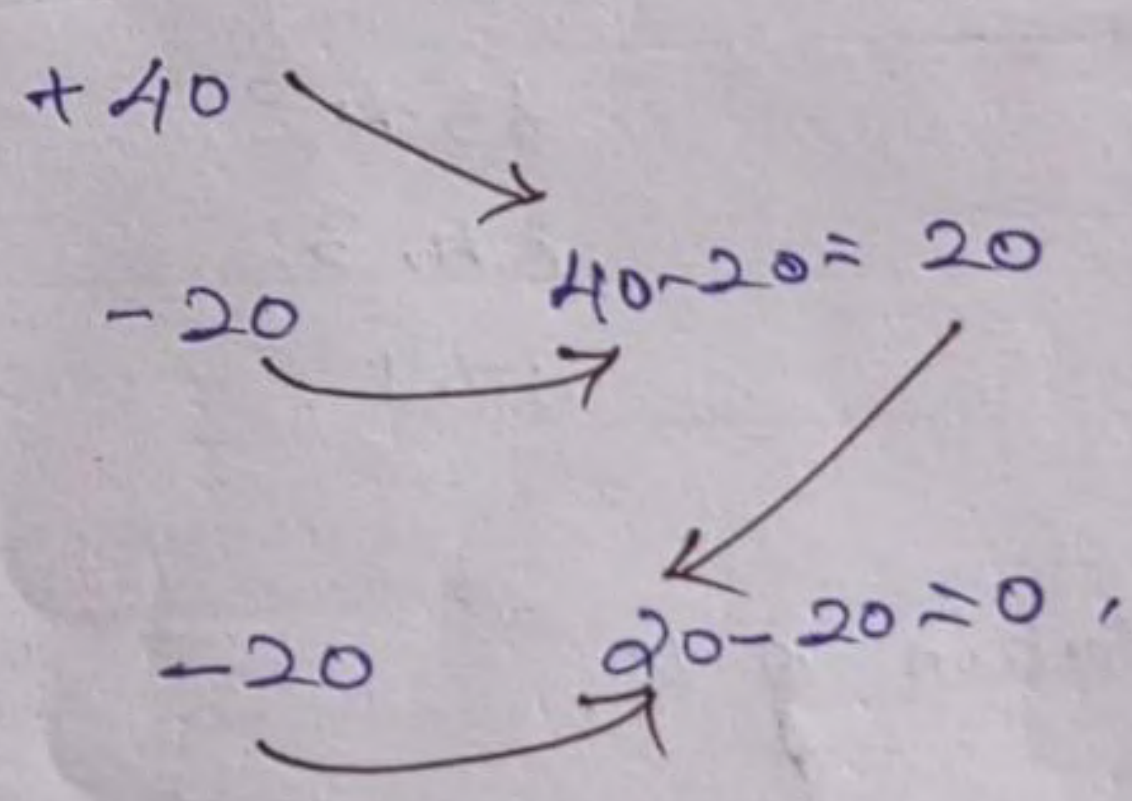 + 40
- 20
40-20= 20
- 20
20-20=0.